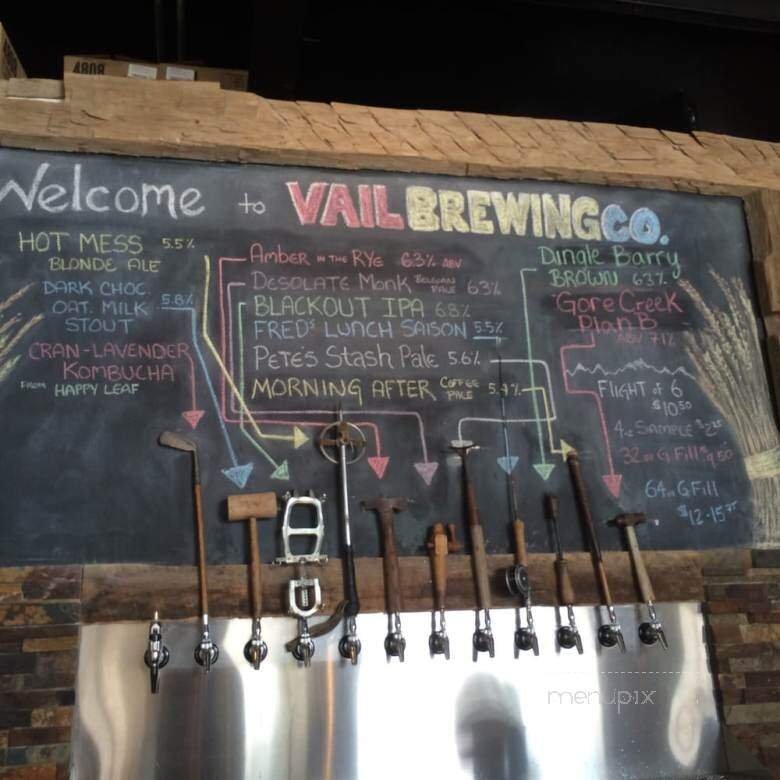 4808
Welcome to VAIL BREWING CO.
HOT MESS 5.5%
BLONDE ALE
DARK CHOC.
OAT. MILK 5.8%
STOUT
CRAN-LAVENDER
KOMBUCHA
FROM HAPPY LEAF
AMBER IN THE RYE 6.3% ABV
DESOLATE MONK BELGIAN PALE 6.3%
BLACKOUT IPA 6.8%
FRED'S LUNCH SAISON 5.5%
PETE'S STASH PALE 5.6%
MORNING AFTER COFFEE PALE 5.4%
Dingle Barry
BROWN 6.3%
Gore Creek
Plan B
ABV 7.1%
FLIGHT of 6
$10.50
4oz SAMPLE $2.25
32oz G Fill $9.50
64oz G Fill
$12-15.75
menupix